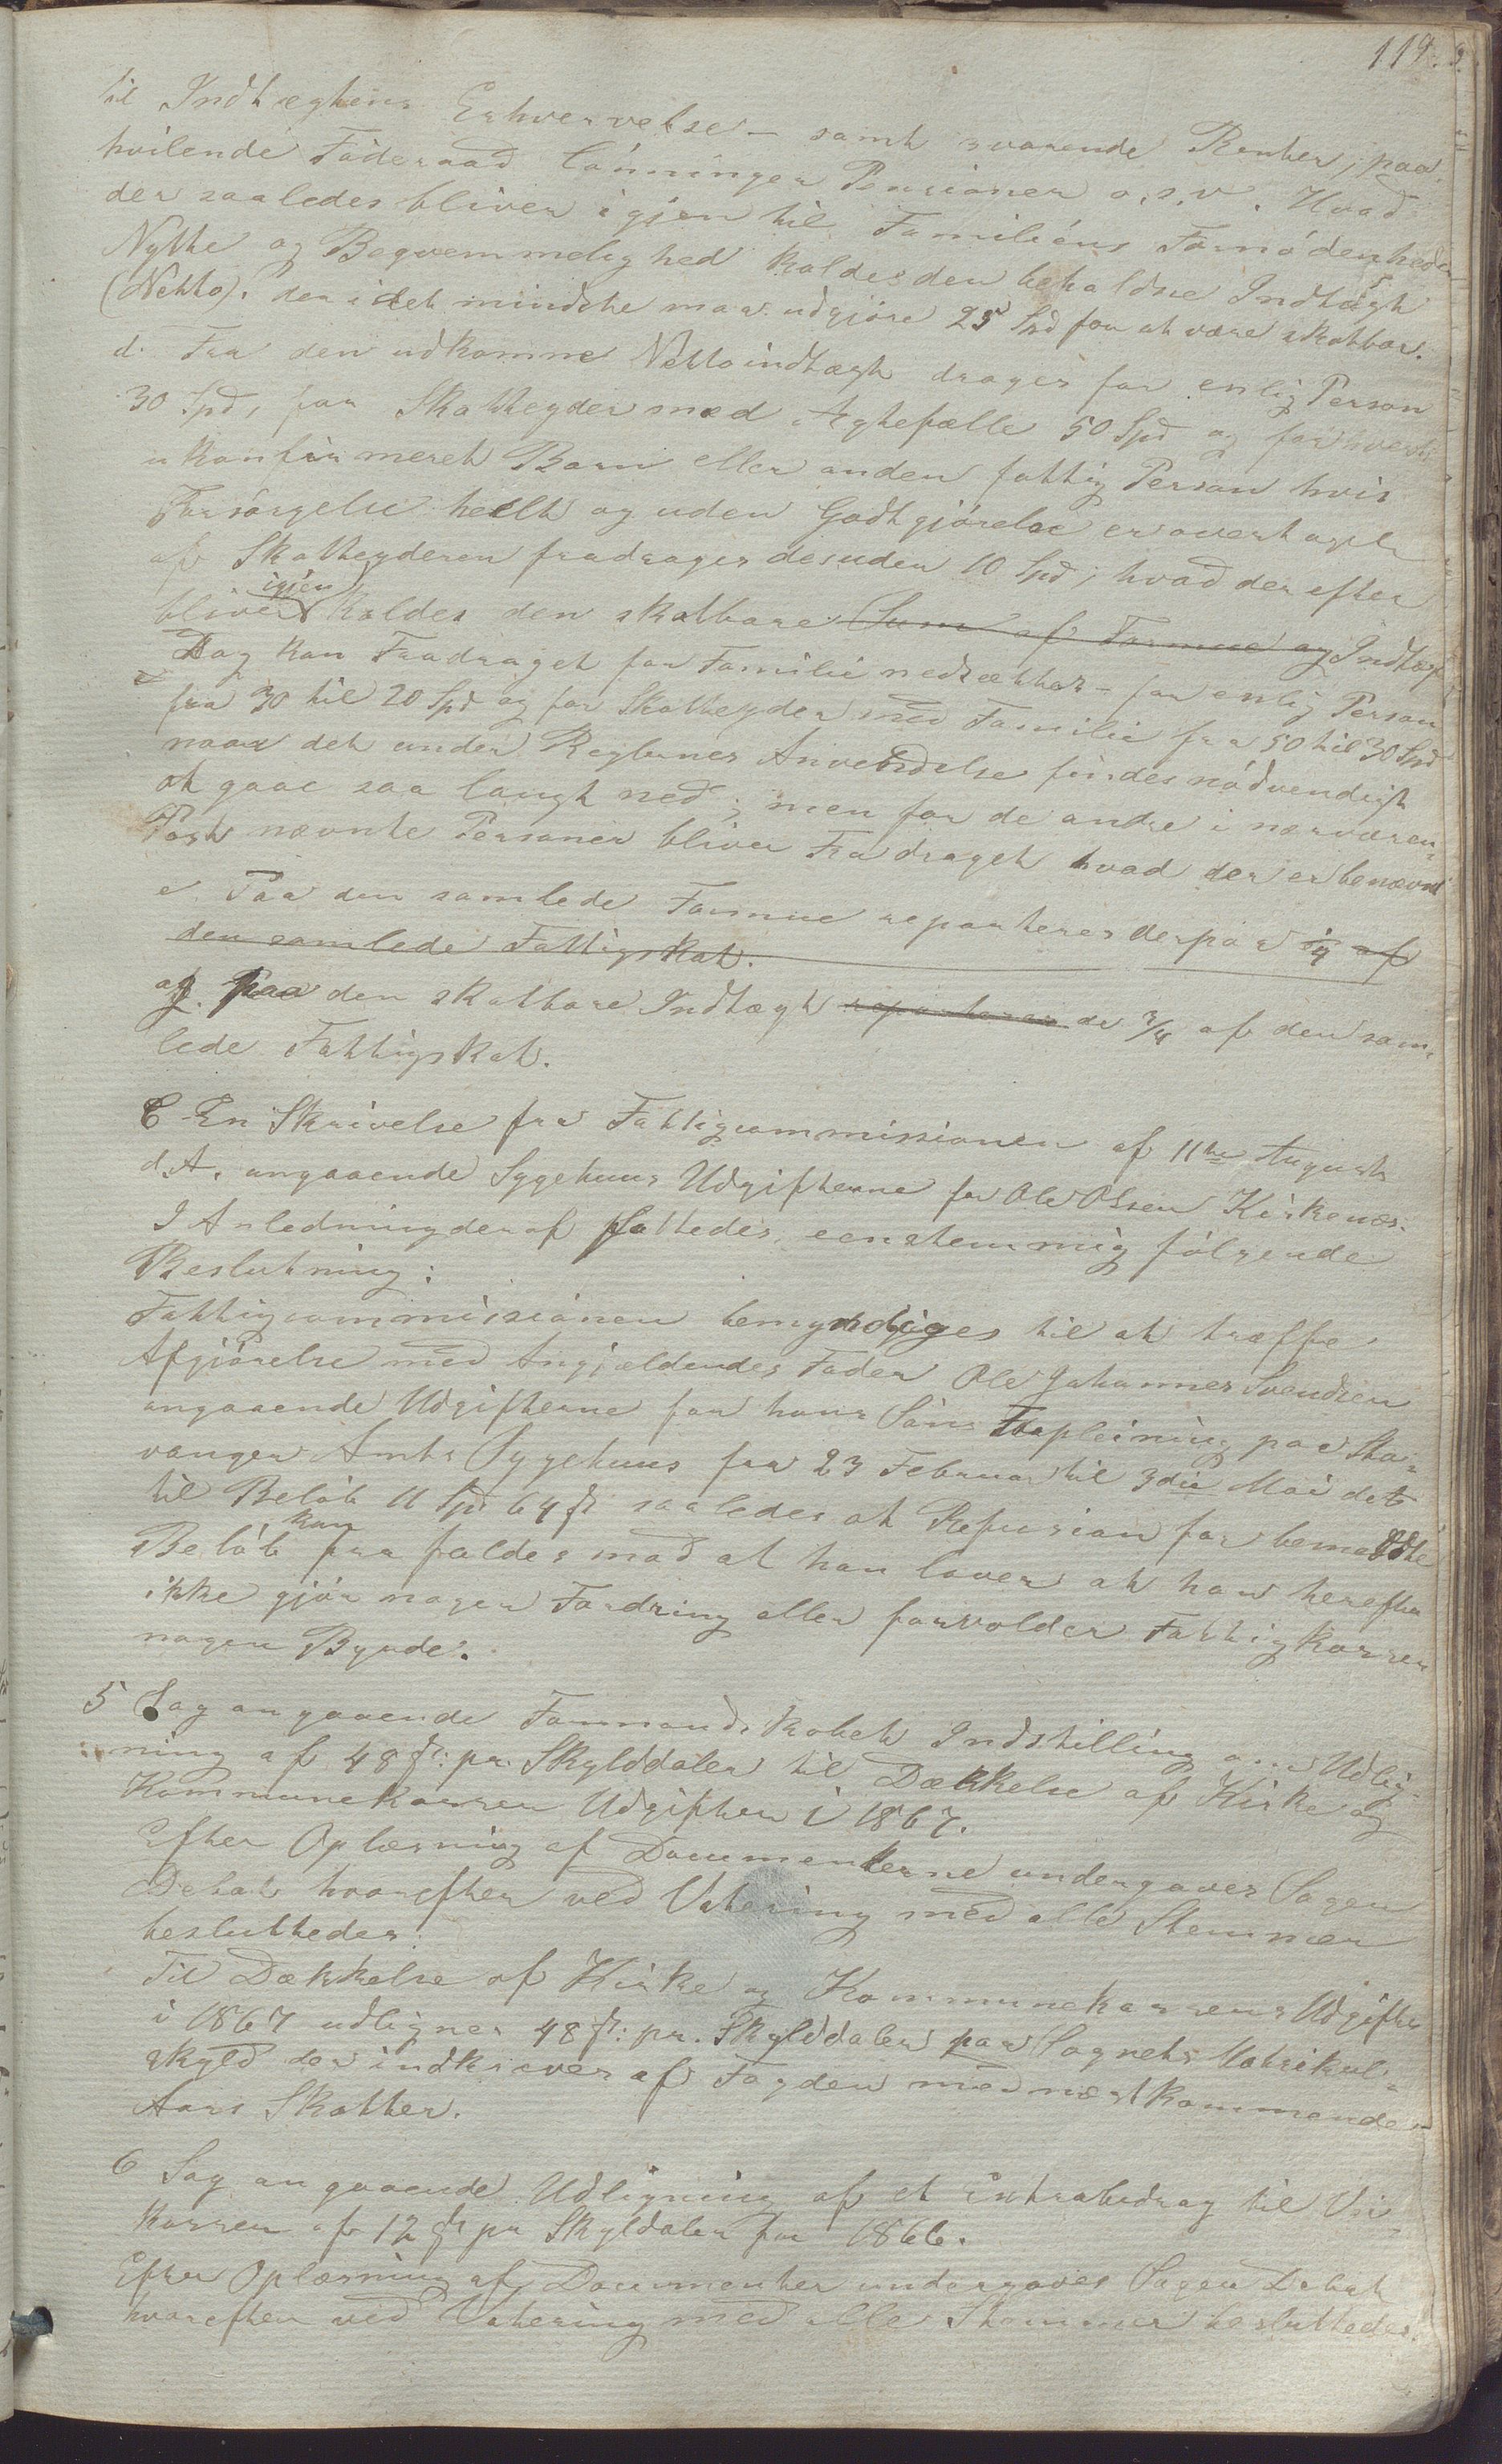 119.
til Indtægtens Erhvervelse – samt svarende Renter, paa-
hvilende Föderaad Lönninger Pensioner o.s.v. Hvad
der saaledes bliver igjen til Familiens Fornödenheder
Nytte og Beqvemmelighed kaldes den beholdne Indtægt
(Netto). der i det mindste maa udgjöre 25 Spd for at være skatbar.
d. Fra den udkomne Nettoindtægt drages for enlig Person
30 Spd, for Skatteyder med Ægtefælle 50 Spd og for hvert
ukonfirmeret Barn eller anden fattig Person hvis
Forsörgelse heelt og uden Godtgjörelse er overtaget
af Skatteyderen fradrages desuden 10 Spd; hvad der efter
igjen
bliver kaldes den skatbare Sum af Formue og Indtægt
Dog kan Fradraget for Familie nedsættes – for enlig Person
fra 30 til 20 Spd og for Skatteyder med Familie fra 50 til 30 Spd
naar det under Reglernes Anvendelse findes nödvendigt
at gaae saa langt ned; men for de andre i nærværen-
Post nævnte Personer bliver Fradraget hvad der er benævnt
e. Paa den samlede Formue reparteres derpaa 1/4 af
den samlede Fattigskat.
og paa den skatbare Indtægt reparteres de 3/4 af den sam-
lede Fattigskat.
C En Skrivelse fra Fattigcommissionen af 11te August
d.A. angaaende Sygehuus Udgifterne for Ole Olsen Kirkenæs.
I Anledning deraf fattedes eenstemmig fölgende
Beslutning:
Fattigcommissionen bemyndiges til at træffe
Afgjörelse med Angjældendes Fader Ole Johannes Svendsen
angaaende Udgifterne for hans Söns Forpleining paa Sta-
vanger Amts Sygehuus fra 23 Februar til 3die Mai dets
til Belöb 11 Spd 64 ß saaledes at Refusion for bemeldte
kan
Belöb frafaldes mod at han lover at han herefter
ikke gjör nogen Fordring eller forvolder Fattigkassen
nogen Byrde.
5 Sag angaaende Formandskabets Indstilling om Udlig-
ning af 48 ß: pr. Skylddaler til Dækkelse af Kirke og
Kommunekassens Udgifter i 1867.
Efter Oplæsning af Documenterne undergaves Sagen
Debat hvorefter ved Votering med alle Stemmer
besluttedes:
Til Dækkelse af Kirke og Kommunekassens Udgifter
i 1867 udlignes 48 ß: pr. Skylddaler paa Sognets Matrikul-
skyld der indkræves af Fogden med næstkommende
Aars Skatter.
6 Sag angaaende Udligning af et Extrabidrag til Vei-
kassen af 12 ß pr Skyldaler for 1866.
Efter Oplæsning af Documenter undergaves Sagen Debat
hvorefter ved Votering med alle Stemmer besluttedes: